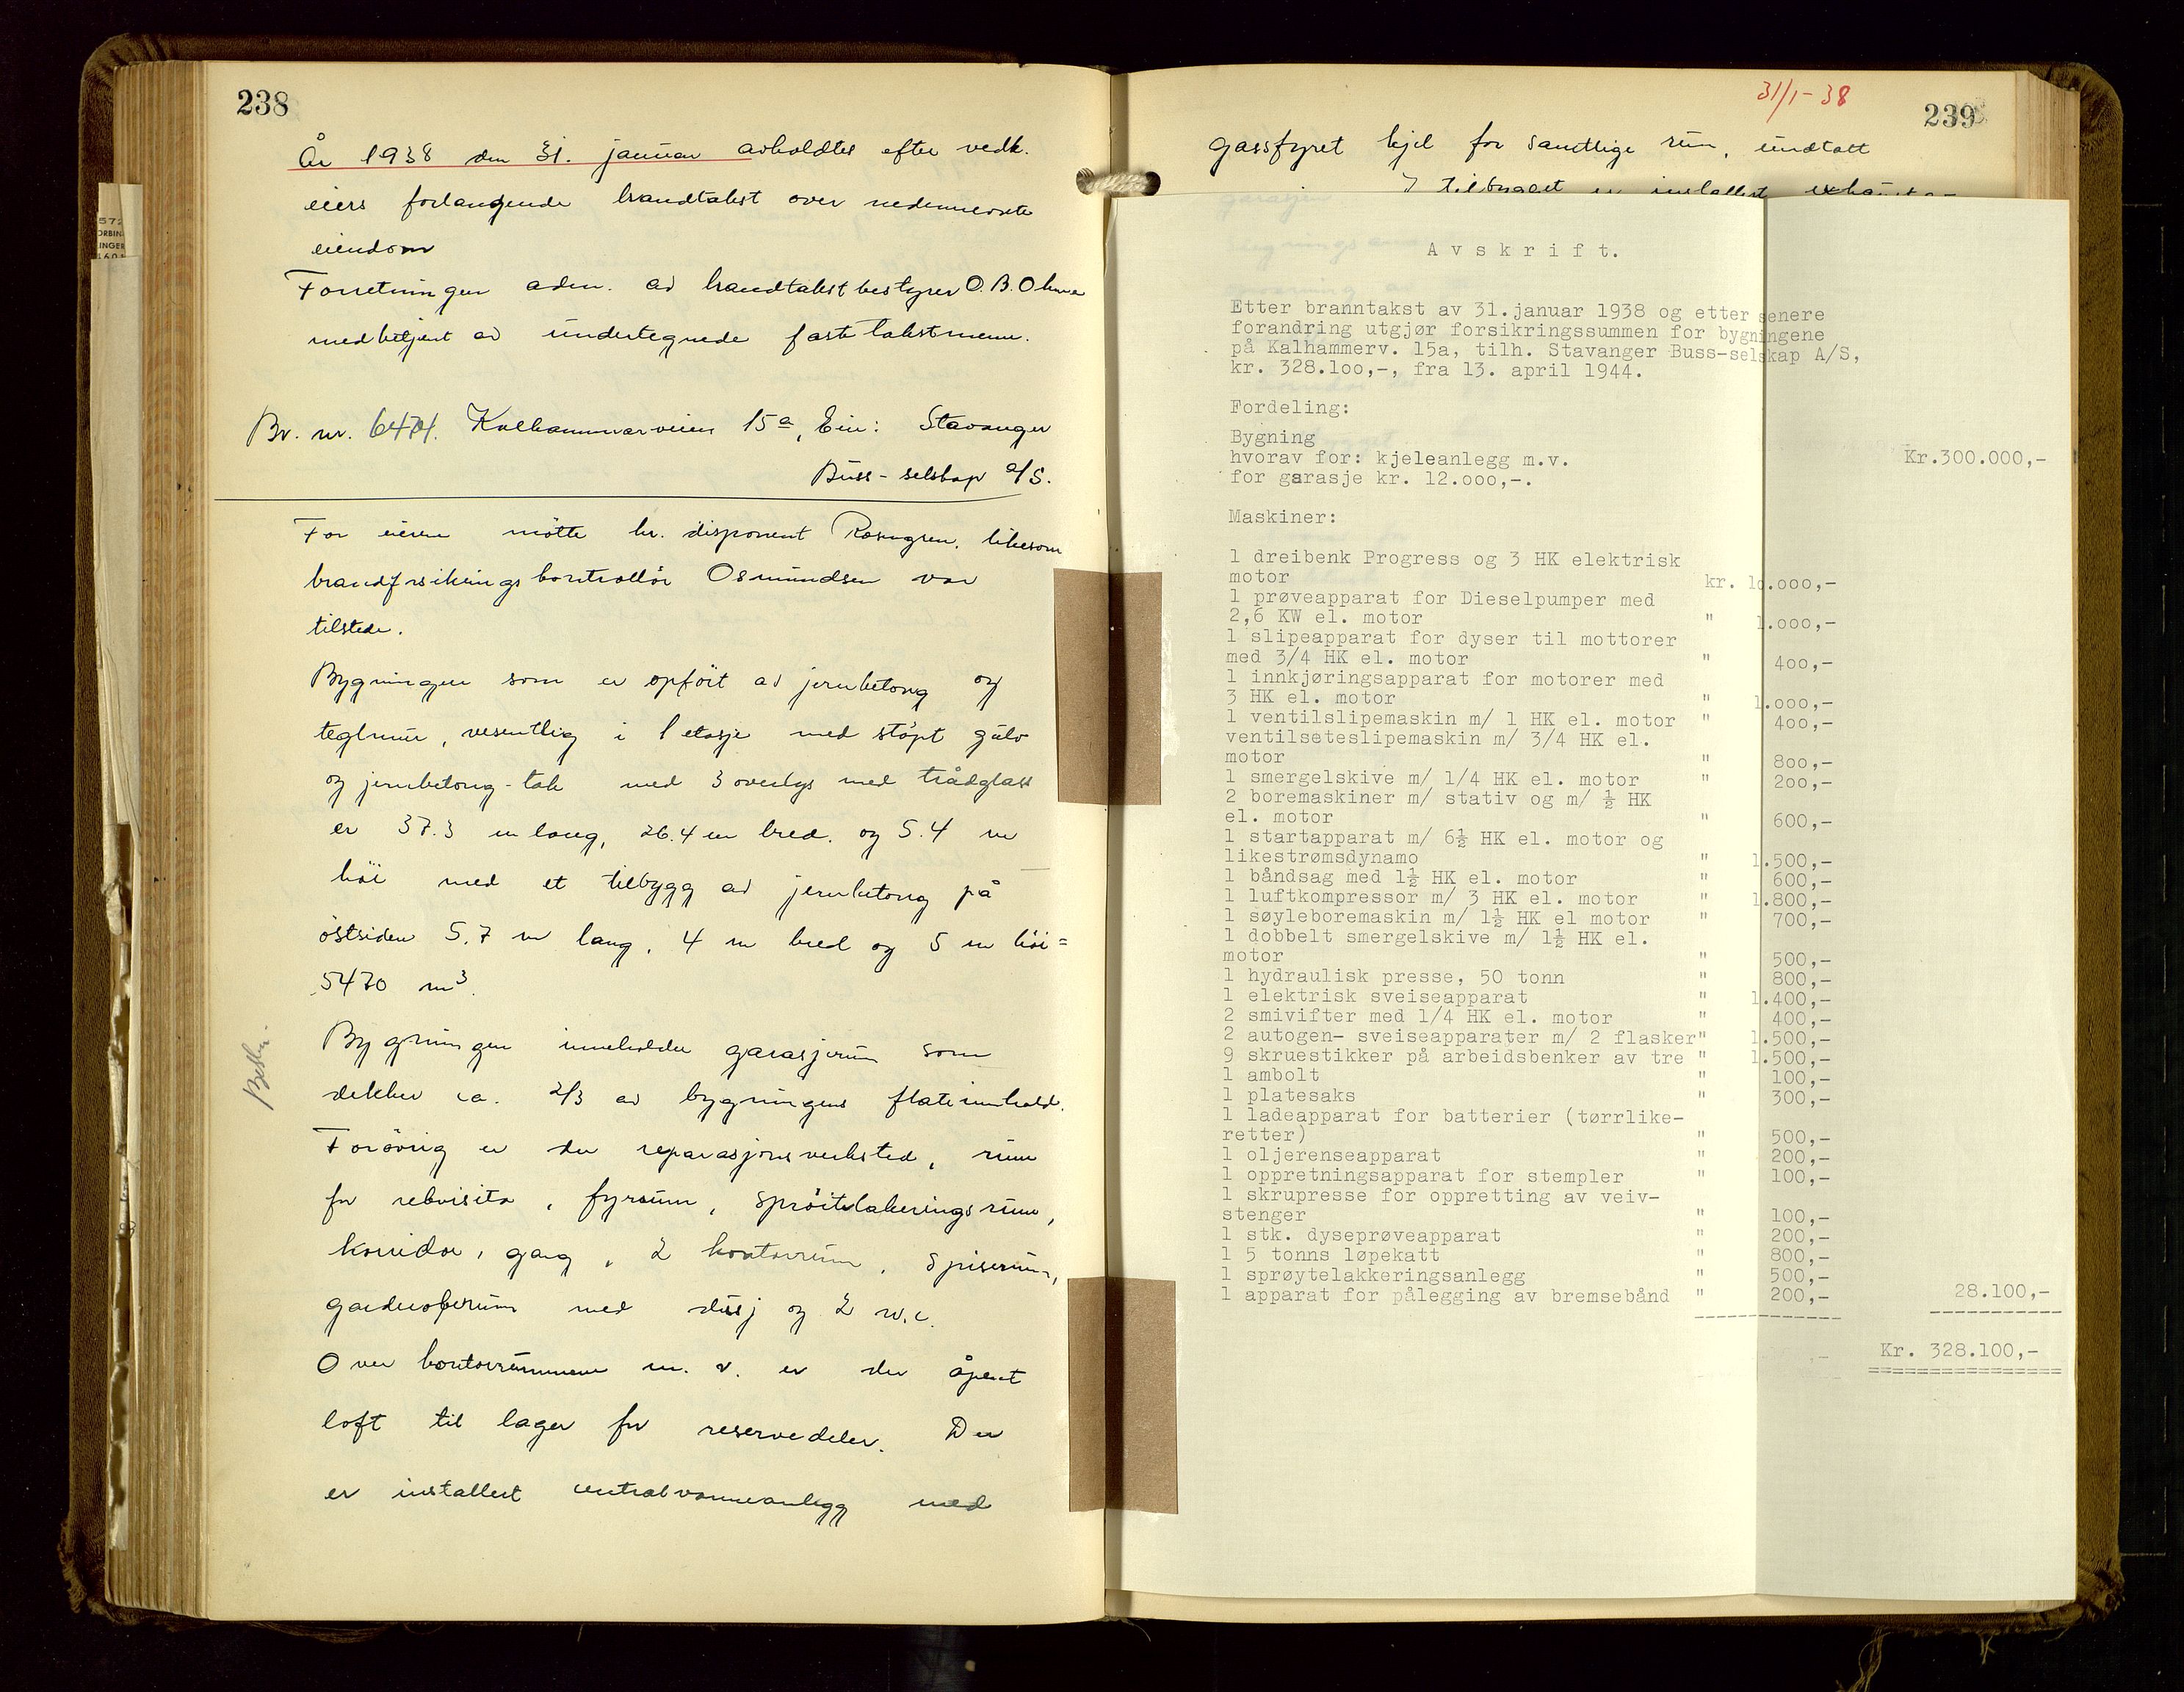 238
År 1938 den 31. januar avholdtes efter vedk.
eiers forlangende brandtakst over nedennevnte
eiendom
Forretningen adm. av brandtakstbestyrer O. B. Ohma
medbetjent av undertegnede faste takstmenn.
Br. nr. 6474. Kalhammarveien 15a, Eier: Stavanger
Buss-selskap A/S.
For eieren møtte hr. disponent Rosengren, likesom
brandforsikringskontrollör Osmundsen var
tilstede.
Bygningen som er opfört av jernbetong og
teglmur, vesentlig i 1 etasje med støpt gulv
og jernbetong-tak med 3 overlys med trådglass
er 37.3 m lang, 26.4 m bred. og 5.4 m
höi med et tilbygg av jernbetong på
östsiden 5.7 m lang, 4 m bred og 5 m höi =
5470 m³.
Bygningen inneholder garasjerum som
dekker ca. 2/3 av bygningens flateinnhold.
Forövrig er der reparasjonsverksted, rum
for rekvisita, fyrrum, spröitelakeringsrum,
korridor, gang, 2 kontorrum, spiserum,
garderoberum med dusj og 2 w.c.
Over kontorrummene m. v. er der åpent
loft til lager for reservedeler. Der
er installert centralvarmeanlegg med
31/1-38
239
gassfyret kjel for samtlige rum, undtatt
I tilbygget er installert
572
ORBIN
INGER
Avskrift.
Etter branntakst av 31.januar 1938 og etter senere
forandring utgjør forsikringssummen for bygningene
på Kalhammerv. 15a, tilh. Stavanger Buss-selskap A/S,
kr. 328.1oo,-, fra 13. april 1944.
Fordeling:
Bygning
hvorav for: kjeleanlegg m.v. Kr.300.000,-
for garasje kr. 12.ooo,-.
Maskiner:
1 dreibenk Progress og 3 HK elektrisk
motor kr. 1o.ooo,-
1 prøveapparat for Dieselpumper med
2,6 KW el. motor " 1.ooo,-
1 slipeapparat for dyser til mottorer
med 3/4 HK el. motor " 4oo,-
1 innkjøringsapparat for motorer med
3 HK el. motor " 1.ooo,-
1 ventilslipemaskin m/ 1 HK el. motor " 4oo,-
ventilseteslipemaskin m/ 3/4 HK el.
motor " 8oo,-
1 smergelskive m/ 1/4 HK el. motor " 2oo,-
2 boremaskiner m/ stativ og m/ ½ HK
el. motor " 600,-
1 startapparat m/ 6½ HK el. motor og
likestrømsdynamo " 1.500,-
1 båndsag med 1½ HK el. motor " 600,-
1 luftkompressor m/ 3 HK el. motor " 1.800,-
1 søyleboremaskin m/ 1½ HK el motor " 700,-
1 dobbelt smergelskive m/ 1½ HK el.
motor " 500,-
1 hydraulisk presse, 50 tonn " 800,-
1 elektrisk sveiseapparat " 1.400,-
2 smivifter med 1/4 HK el. motor " 400,-
2 autogen- sveiseapparater m/ 2 flasker " 1.500,-
9 skruestikker på arbeidsbenker av tre " 1.500,-
1 ambolt " 100,-
1 platesaks " 300,-
1 ladeapparat for batterier (tørrlike-
retter) " 500,-
1 oljerenseapparat " 200,-
1 oppretningsapparat for stempler " 100,-
1 skrupresse for oppretting av veiv-
stenger " 100,-
1 stk. dyseprøveapparat " 200,-
1 5 tonns løpekatt " 800,-
1 sprøytelakkeringsanlegg " 500,-
1 apparat for pålegging av bremsebånd " 200,- 28.100,-
Kr. 328.100,-